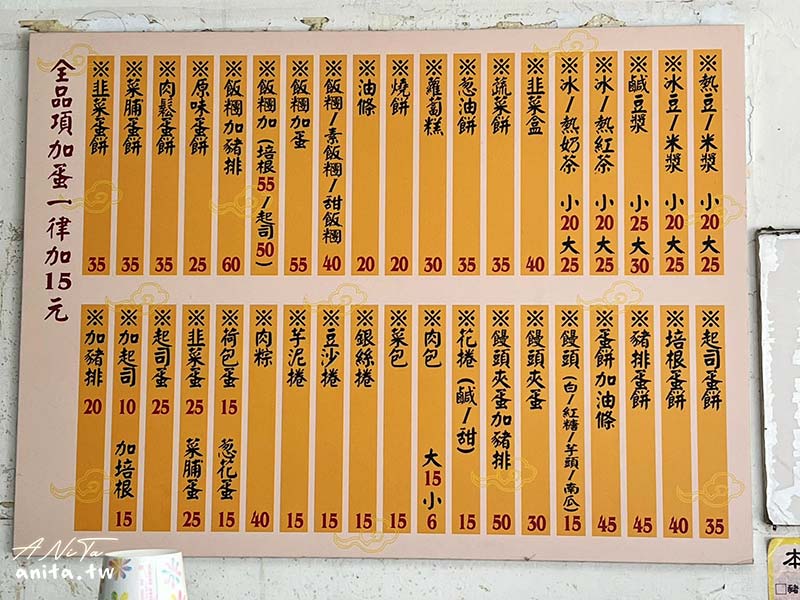 ※熱豆/米漿 小20大25
※冰豆/米漿 小20大25
※鹹豆漿 小25大30
※冰/熱紅茶 小20大25
※冰/熱奶茶 小20大25
※韭菜盒 40
※蔬菜餅 35
※蔥油餅 35
※蘿蔔糕 30
※燒餅 20
※油條 20
※飯糰/素飯糰/甜飯糰 40
※飯糰加蛋 55
※飯糰加(培根55/起司50)
※飯糰加豬排 60
※原味蛋餅 25
※肉鬆蛋餅 35
※菜脯蛋餅 35
※韭菜蛋餅 35
※起司蛋餅 35
※培根蛋餅 40
※豬排蛋餅 45
※蛋餅加油條 45
※饅頭(白/紅糖/芋頭/南瓜) 15
※饅頭夾蛋 30
※饅頭夾蛋加豬排 50
※花捲(鹹/甜) 15
※肉包 大15小6
※菜包 15
※銀絲捲 15
※豆沙捲 15
※芋泥捲 15
※肉粽 40
※荷包蛋 15 蔥花蛋 15
※韭菜蛋 25 菜脯蛋 25
※起司蛋 25
※加起司 10 加培根 15
※加豬排 20
全品項加蛋一律加15元
本
豬
ANiTa
anita.tw